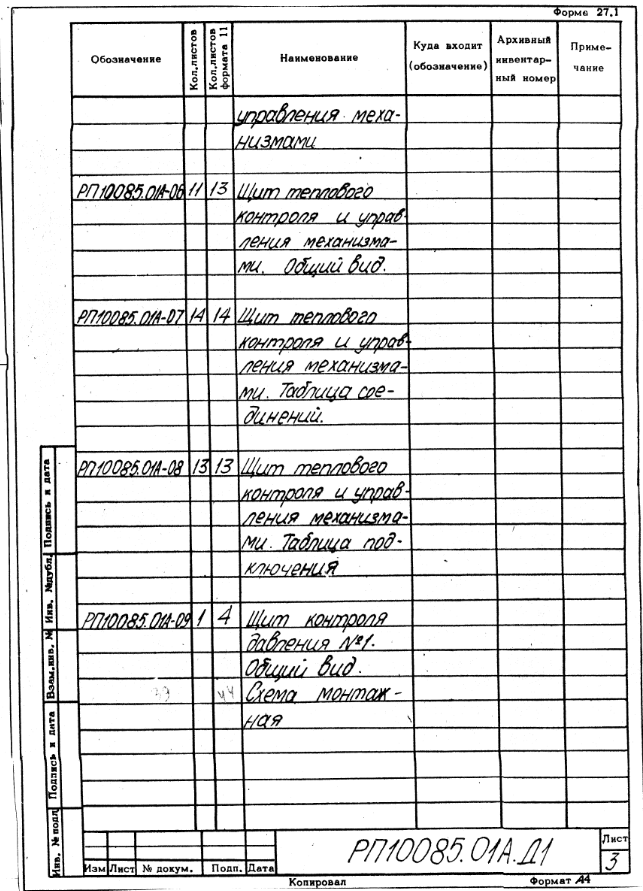 Форма 27.1
Обозначение
Кол.листов
Кол.листов формата 11
Наименование
Куда входит (обозначение)
Архивный инвентарный номер
Примечание
управления меха-
низмами
РП10085.01А-06 11 13 Щит теплового
контроля и управ-
ления механизма-
ми. Общий вид.
РП10085.01А-07 14 14 Щит теплового
контроля и управ-
ления механизма-
ми. Таблица сое-
динений.
РП10085.01А-08 13 13 Щит теплового
контроля и управ-
ления механизма-
ми. Таблица под-
ключения
РП10085.01А-09 1 4 Щит контроля
давления №1.
Общий вид.
39 44 Схема монтаж-
ная
Инв. № подл
Подпись и дата
Взам.инв. №
Инв. №дубл.
Подпись и дата
Изм Лист № докум. Подп. Дата
РП10085.01А.Д1
Лист
3
Копировал Формат А4